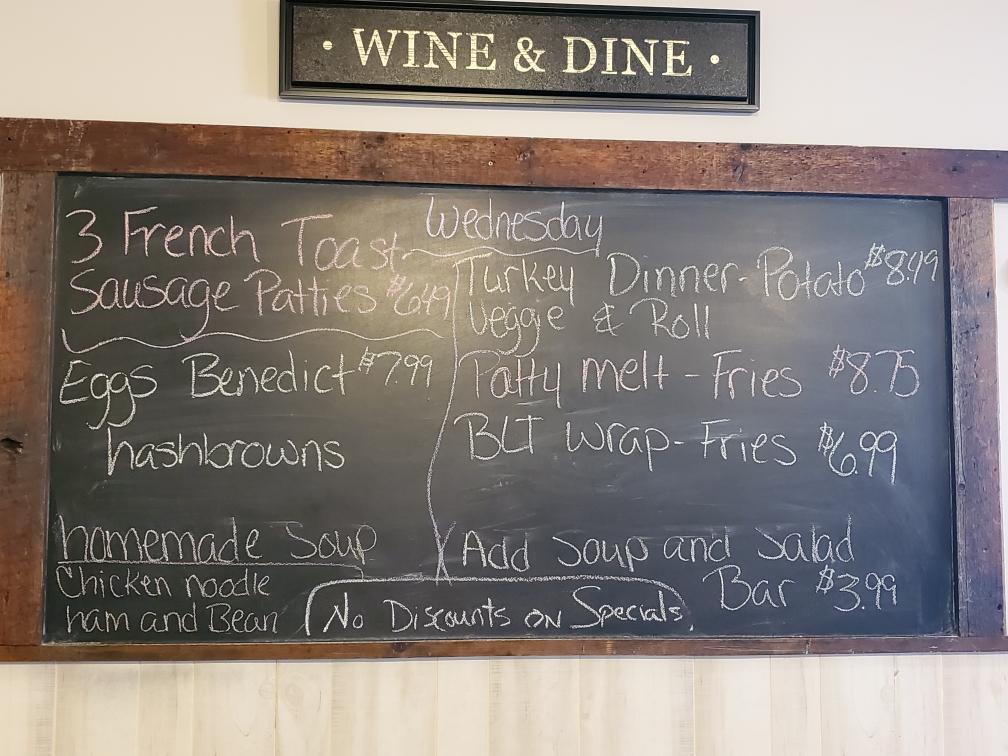 • WINE & DINE •
Wednesday
3 French Toast
Sausage Patties $6.49
Eggs Benedict $7.99
hashbrowns
homemade Soup
Chicken noodle
ham and Bean
Turkey Dinner-Potato $8.49
Veggie & Roll
Patty melt - Fries $8.75
BLT wrap - Fries $6.99
Add Soup and Salad
Bar $3.99
No Discounts on Specials